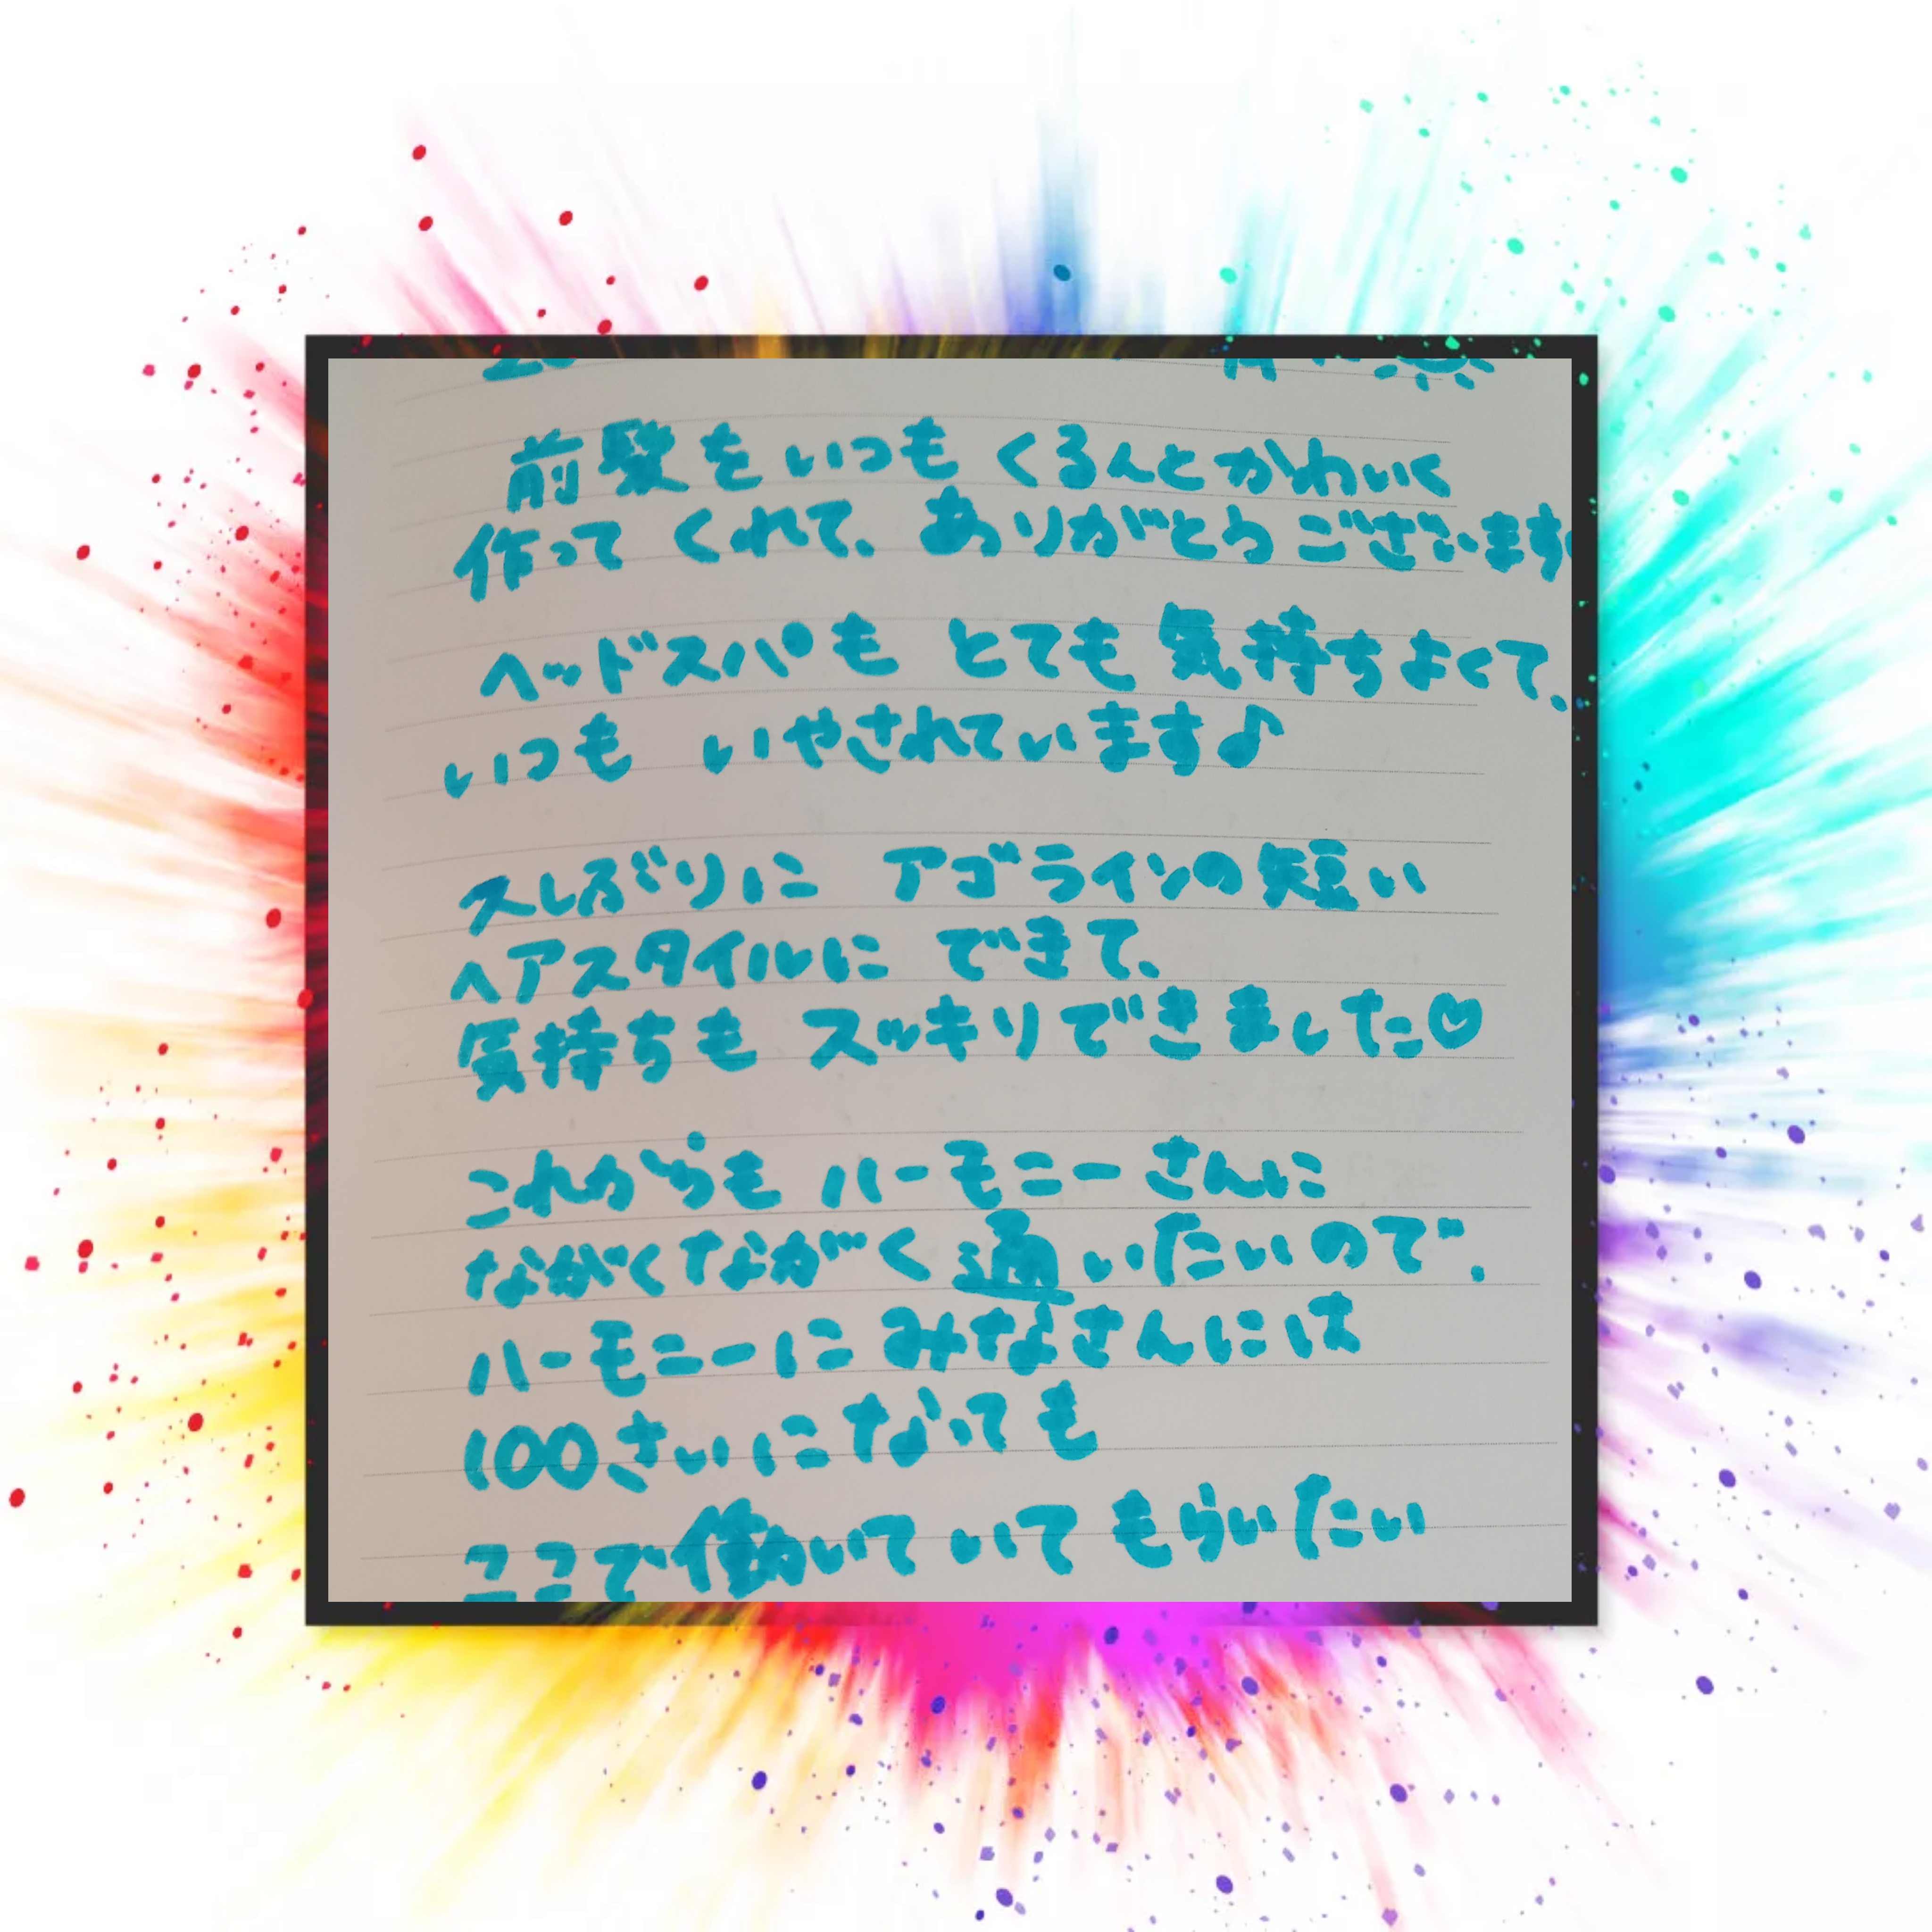 前髪をいつも くるんとかわいく
作って くれて、ありがとうございます
ヘッドスパも とても 気持ちよくて、
いつも いやされています♪
久しぶりに アゴラインの短い
ヘアスタイルに できて、
気持ちも スッキリできました♡
これからも ハーモニーさんに
ながくながく通いたいので、
ハーモニーにみなさんには
100さいになっても
ここで働いていてもらいたい